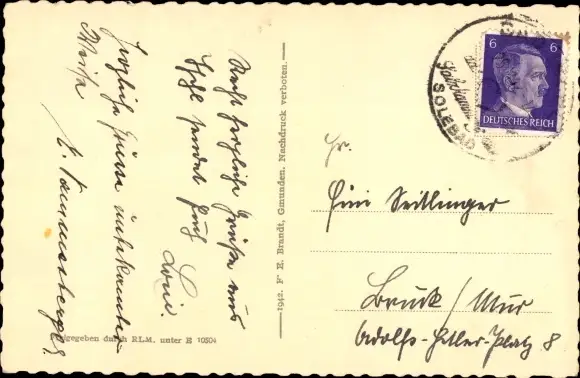 Recht herzliche Grüße aus
Ischl sendet Euch
Loni.
Herzliche Grüsse unbekannter
Weise
Freigegeben durch RLM. unter E 10504
1942. F. E. Brandt, Gmunden. Nachdruck verboten.
6 6
DEUTSCHES REICH
SOLEBAD
Fr.
Fini Seitlinger
Bruck / Mur
Adolf-Hitler-Platz 8